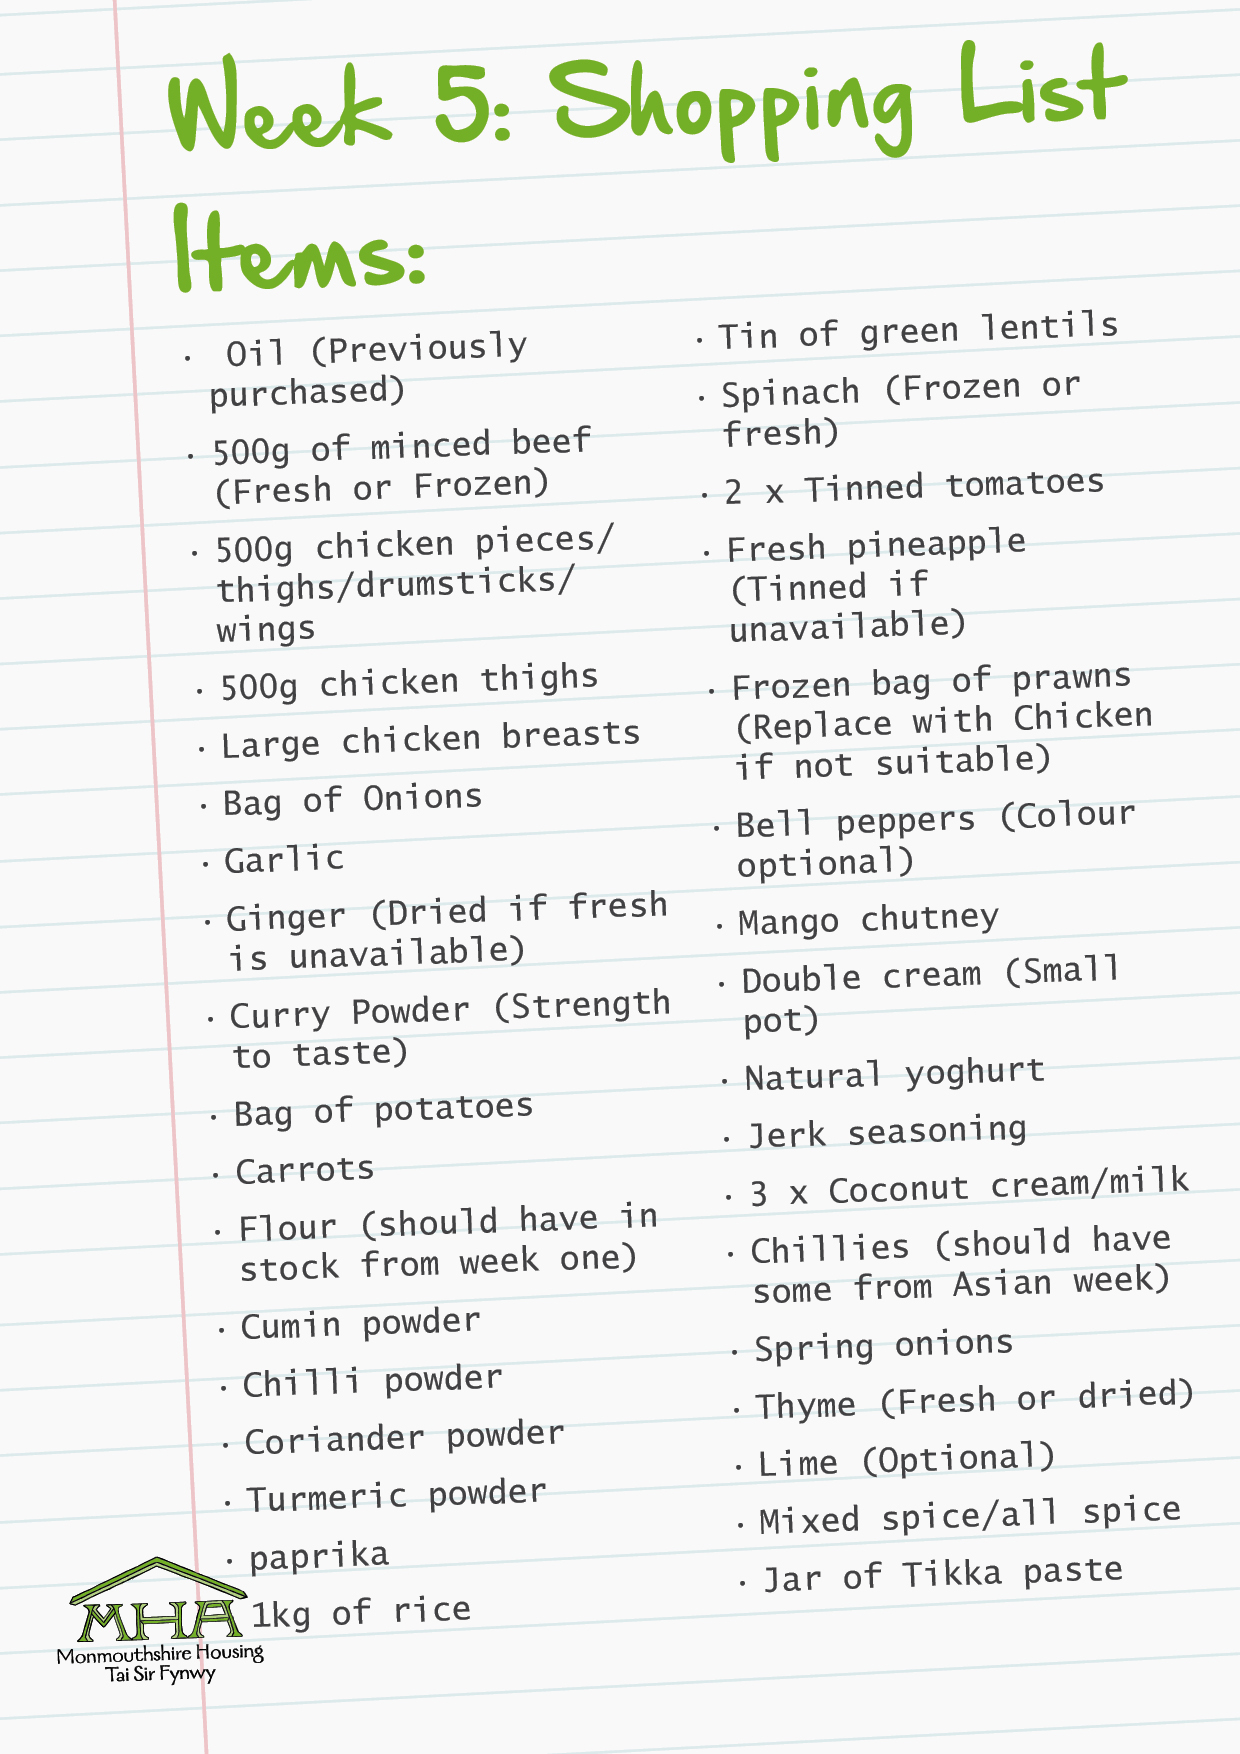 Week 5: Shopping List
Items:
· Oil (Previously
purchased)
· 500g of minced beef
(Fresh or Frozen)
· 500g chicken pieces/
thighs/drumsticks/
wings
· 500g chicken thighs
· Large chicken breasts
· Bag of Onions
· Garlic
· Ginger (Dried if fresh
is unavailable)
· Curry Powder (Strength
to taste)
· Bag of potatoes
· Carrots
· Flour (should have in
stock from week one)
· Cumin powder
· Chilli powder
· Coriander powder
· Turmeric powder
· paprika
1kg of rice
· Tin of green lentils
· Spinach (Frozen or
fresh)
· 2 x Tinned tomatoes
· Fresh pineapple
(Tinned if
unavailable)
· Frozen bag of prawns
(Replace with Chicken
if not suitable)
· Bell peppers (Colour
optional)
· Mango chutney
· Double cream (Small
pot)
· Natural yoghurt
· Jerk seasoning
· 3 x Coconut cream/milk
· Chillies (should have
some from Asian week)
· Spring onions
· Thyme (Fresh or dried)
· Lime (Optional)
· Mixed spice/all spice
· Jar of Tikka paste
MHA
Monmouthshire Housing
Tai Sir Fynwy